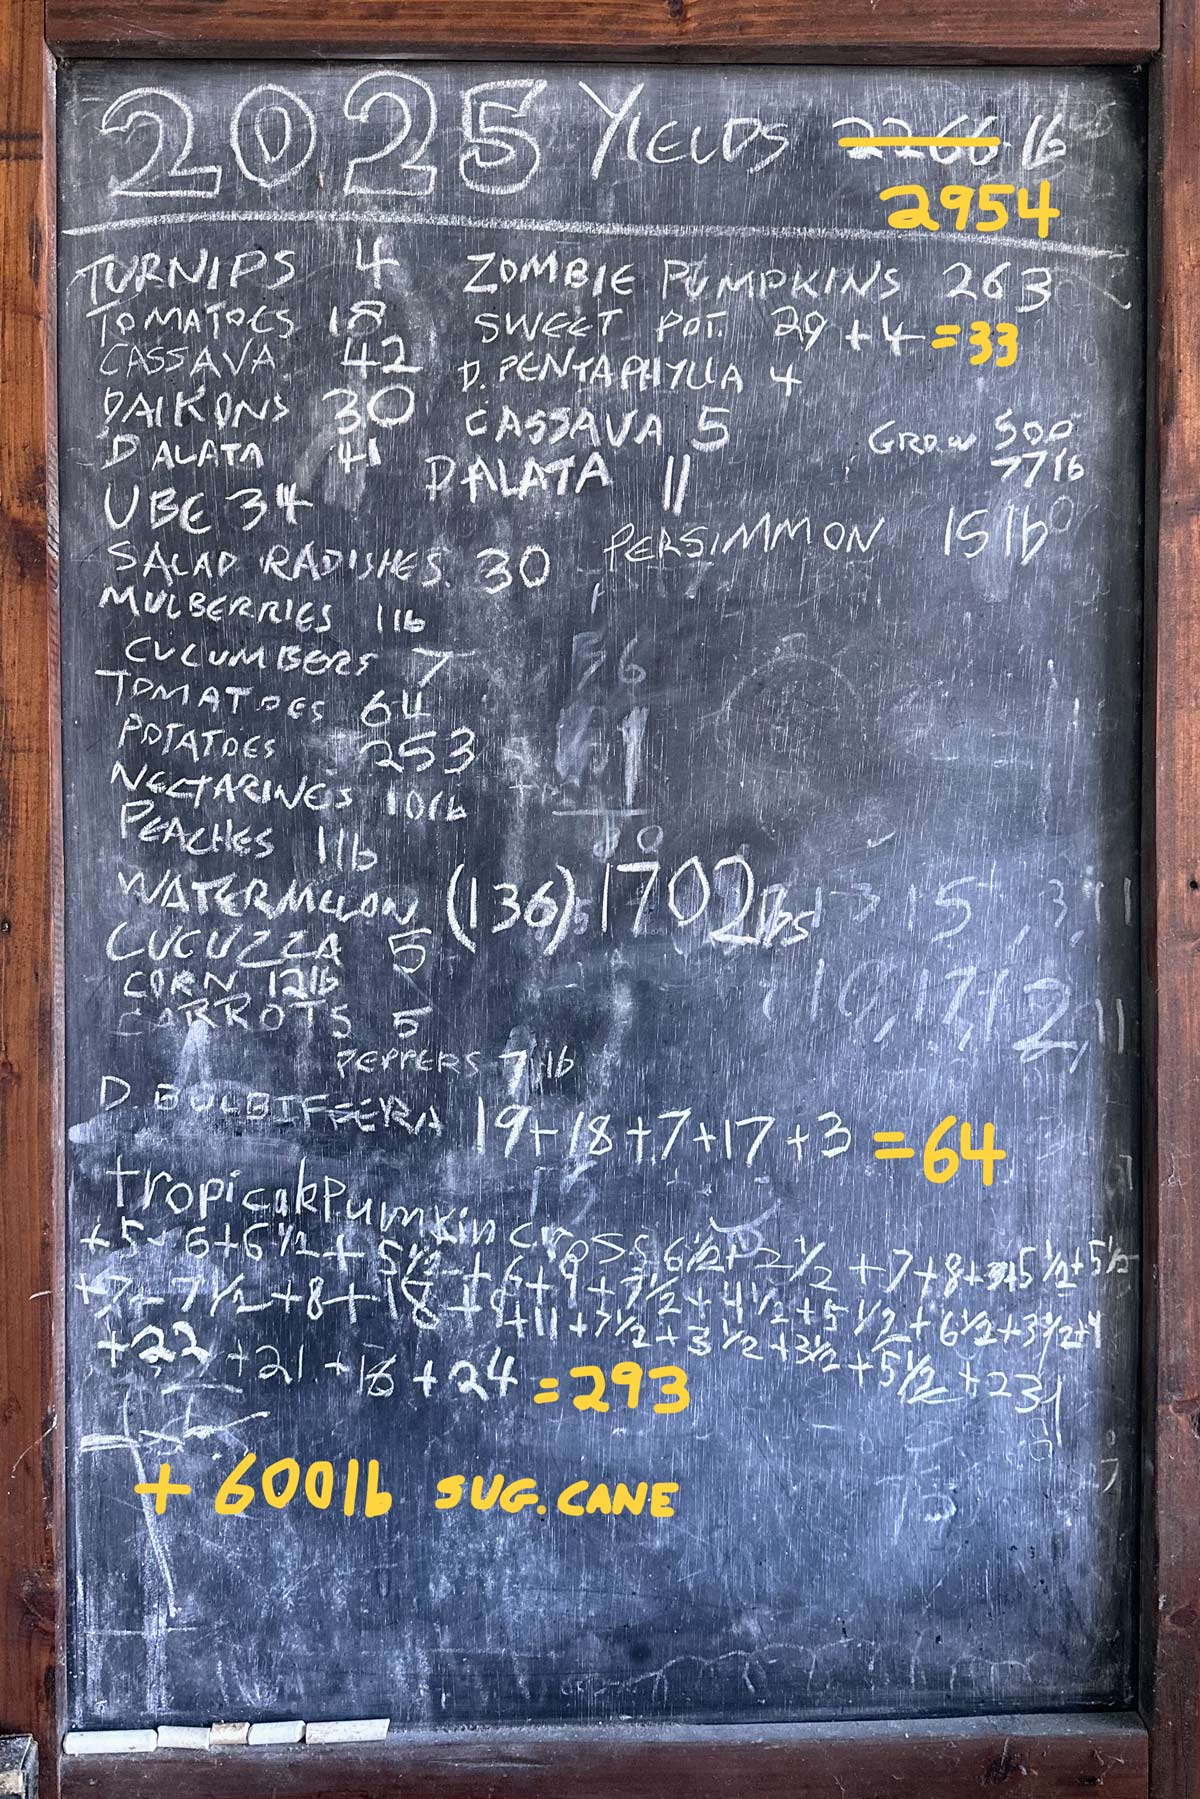 2025 YIELDS 2266 lb
2954
TURNIPS 4
TOMATOES 18
CASSAVA 42
DAIKONS 30
D ALATA 41
UBE 34
SALAD RADISHES 30
MULBERRIES 1lb
CUCUMBERS 7
TOMATOES 64
POTATOES 253
NECTARINES 10lb
PEACHES 1lb
WATERMELON (136) 1702 lbs
CUCUZZA 5
CORN 12lb
CARROTS 5
PEPPERS 7 lb
ZOMBIE PUMPKINS 263
SWEET POT. 29 + 4 = 33
D. PENTAPHYLLA 4
CASSAVA 5
D ALATA 11
GROW 500
77lb
PERSIMMON 15lb
D. BULBIFFERA 19+18+7+17+3 = 64
tropical Pumkin Cross 6½+2½+7+8+3+5½+5½
+22 +21 +18 +24 = 293
+ 600lb SUG. CANE